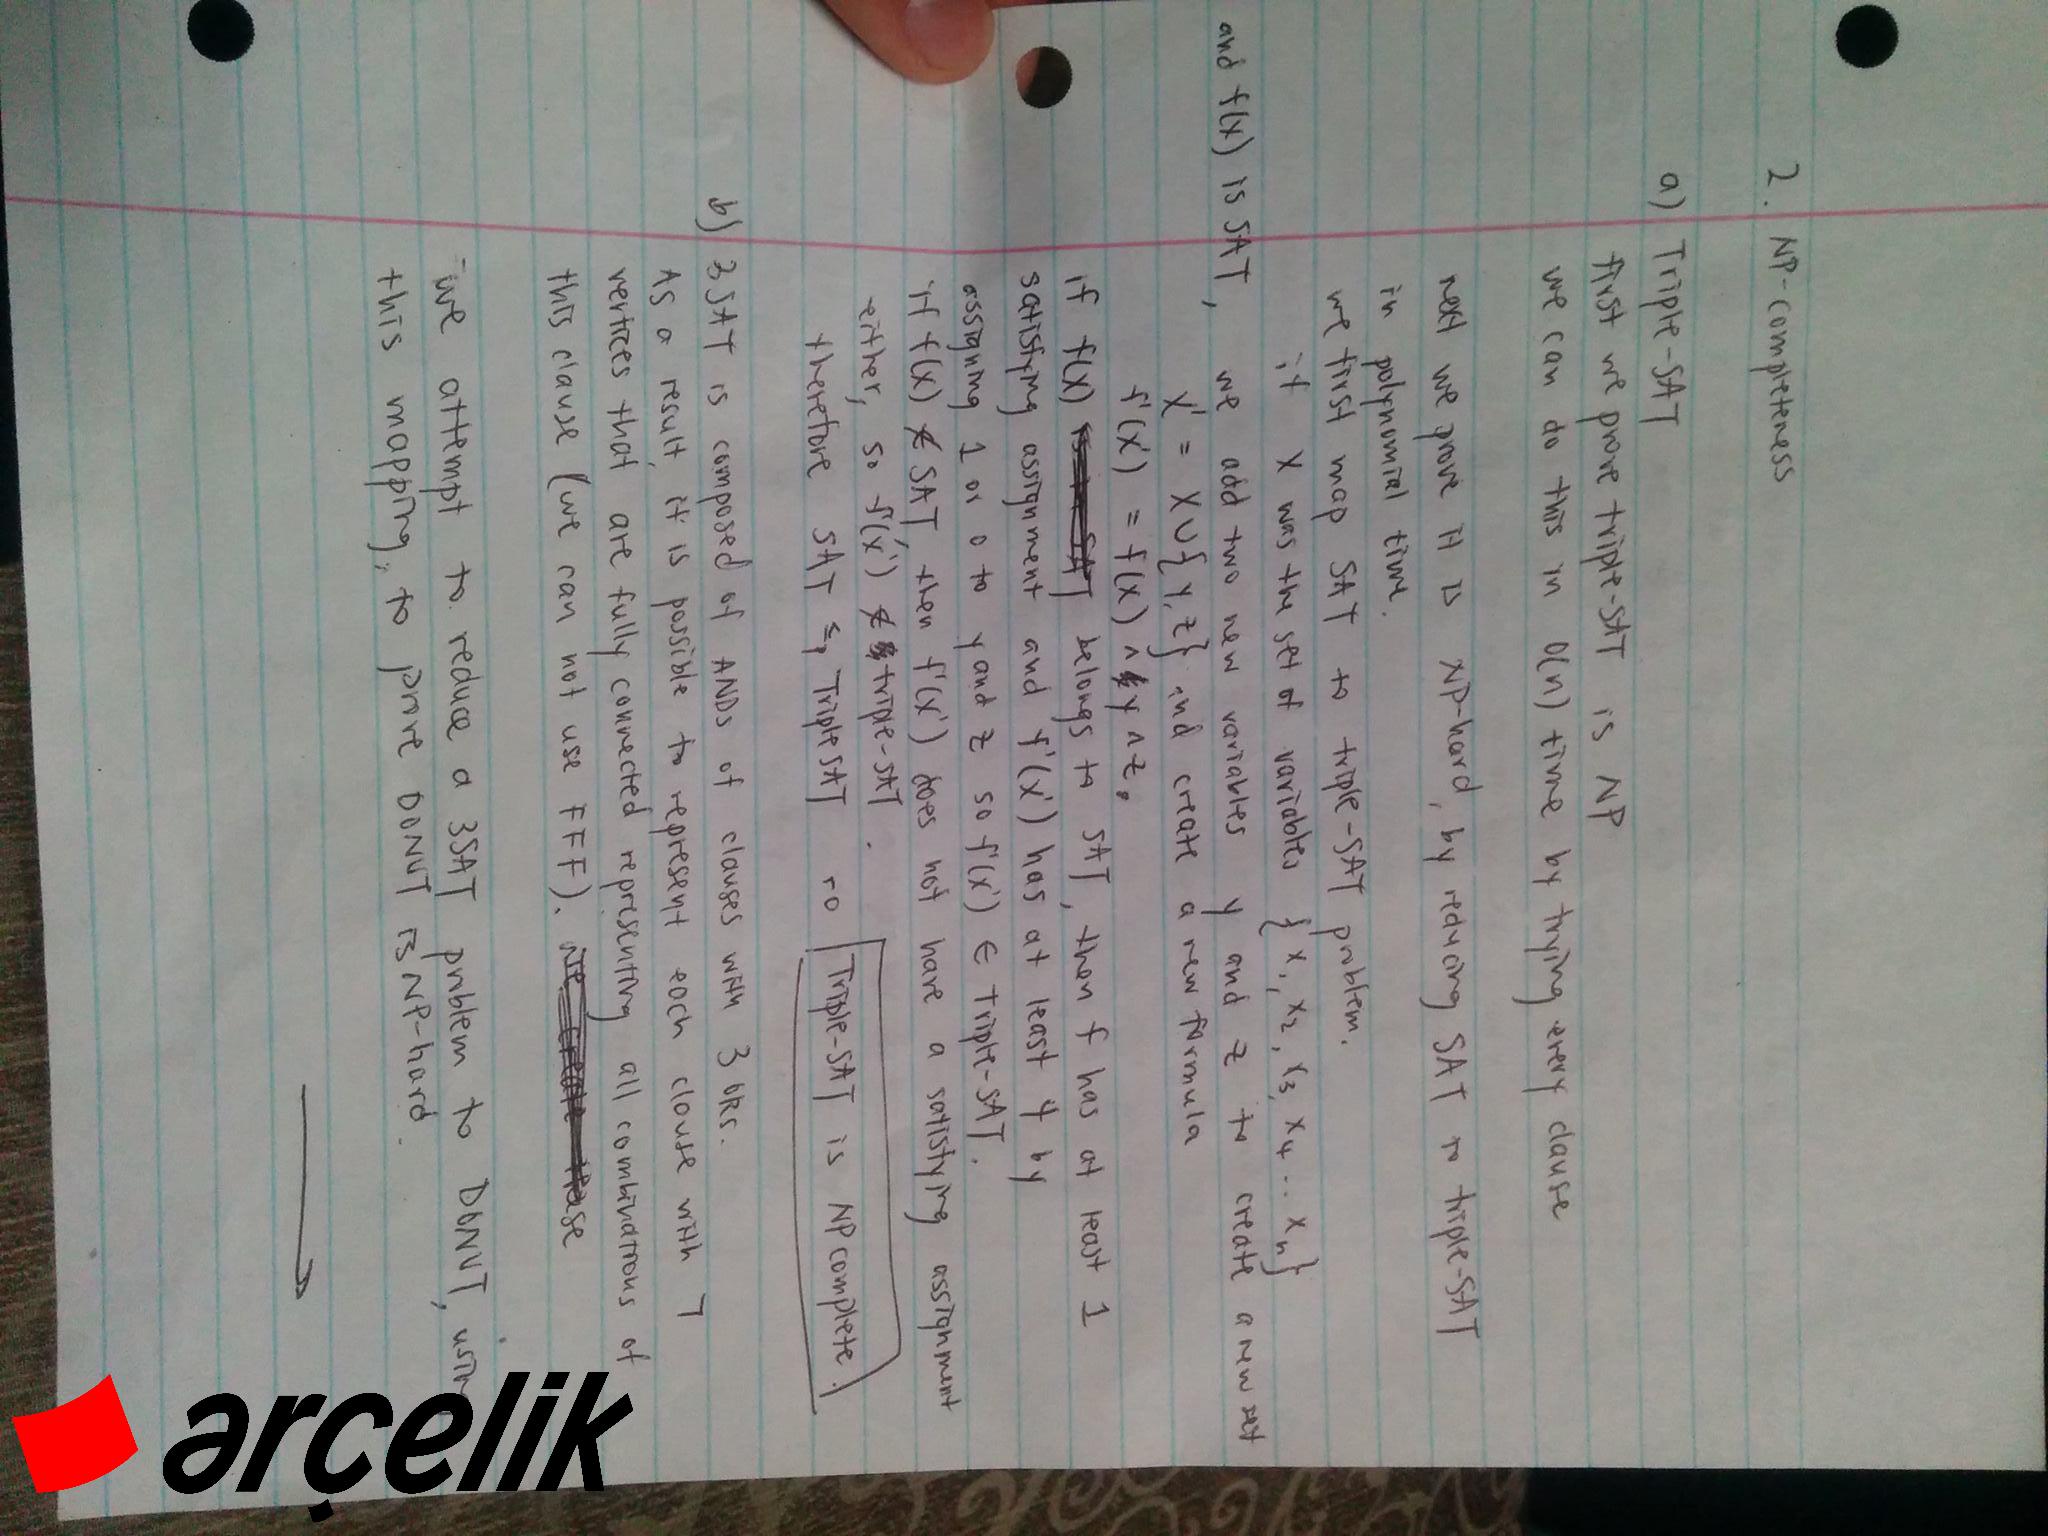 2. NP-completeness
a) Triple-SAT
first we prove triple-SAT is NP
we can do this in O(n) time by trying every clause
next we prove it is NP-hard, by reducing SAT to triple-SAT
in polynomial time.
we first map SAT to triple-SAT problem.
if X was the set of variables {x₁, x₂, x₃, x₄ ... xₙ}
and f(x) is SAT, we add two new variables y and z to create a new set
X' = X ∪ {y, z} and create a new formula
f'(x') = f(x) ∧ y ∧ z.
if f(x) belongs to SAT, then f has at least 1
satisfying assignment and f'(x') has at least 4 by
assigning 1 or 0 to y and z so f'(x') ∈ Triple-SAT.
if f(x) ∉ SAT, then f'(x') does not have a satisfying assignment
either, so f'(x') ∉ triple-SAT.
therefore SAT ≤ₚ TripleSAT so Triple-SAT is NP complete.
b) 3SAT is composed of ANDs of clauses with 3 ORs.
As a result, it is possible to represent each clause with 7
vertices that are fully connected representing all combinations of
this clause (we can not use FFF).
we attempt to reduce a 3SAT problem to DONUT,
this mapping, to prove DONUT is NP-hard.
arçelik